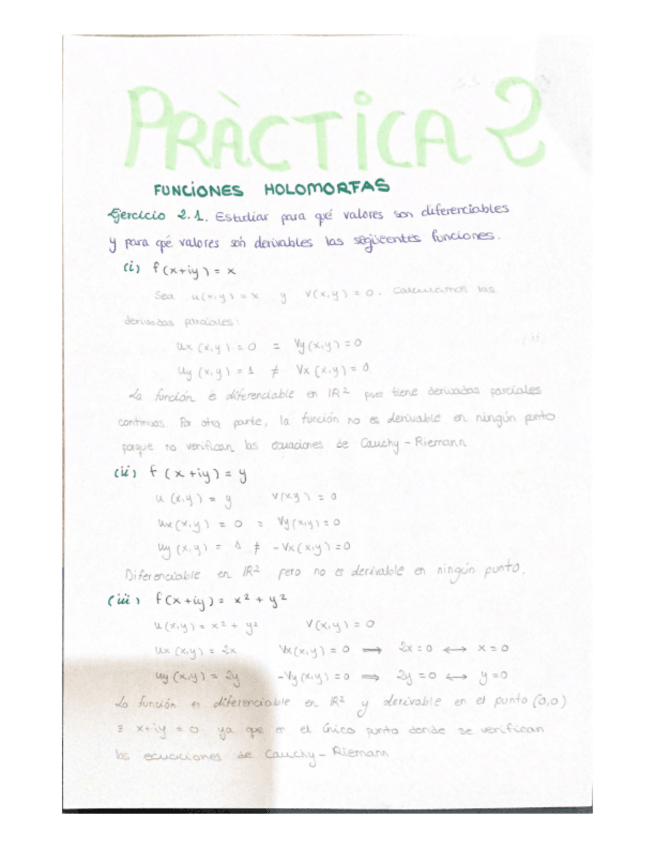 PRÀCTICA 2
FUNCIONES HOLOMORFAS
Ejercicio 2.1. Estudiar para qué valores son diferenciables
y para qué valores son derivables las siguientes funciones.
(i) f(x+iy) = x
Sea u(x,y) = x y v(x,y) = 0. Calculamos las
derivadas parciales:
ux (x,y) = 0 = Vy(x,y) = 0
uy (x,y) = 1 ≠ Vx (x,y) = 0
La función es diferenciable en IR² pues tiene derivadas parciales
continuas. Por otra parte, la función no es derivable en ningún punto
porque no verifican las ecuaciones de Cauchy - Riemann
(ii) f(x+iy) = y
u (x,y) = y v(x,y) = 0
ux(x,y) = 0 = Vy(x,y) = 0
uy (x,y) = 1 ≠ -Vx(x,y) = 0
Diferenciable en IR² pero no es derivable en ningún punto.
(iii) f(x+iy) = x² + y²
u(x,y) = x² + y² V(x,y) = 0
ux (x,y) = 2x Vx(x,y) = 0 ⟹ 2x = 0 ⟷ x = 0
uy (x,y) = 2y -Vy(x,y) = 0 ⟹ 2y = 0 ⟷ y = 0
La función es diferenciable en IR² y derivable en el punto (0,0)
≡ x+iy = 0 ya que es el único punto donde se verifican
las ecuaciones de Cauchy - Riemann